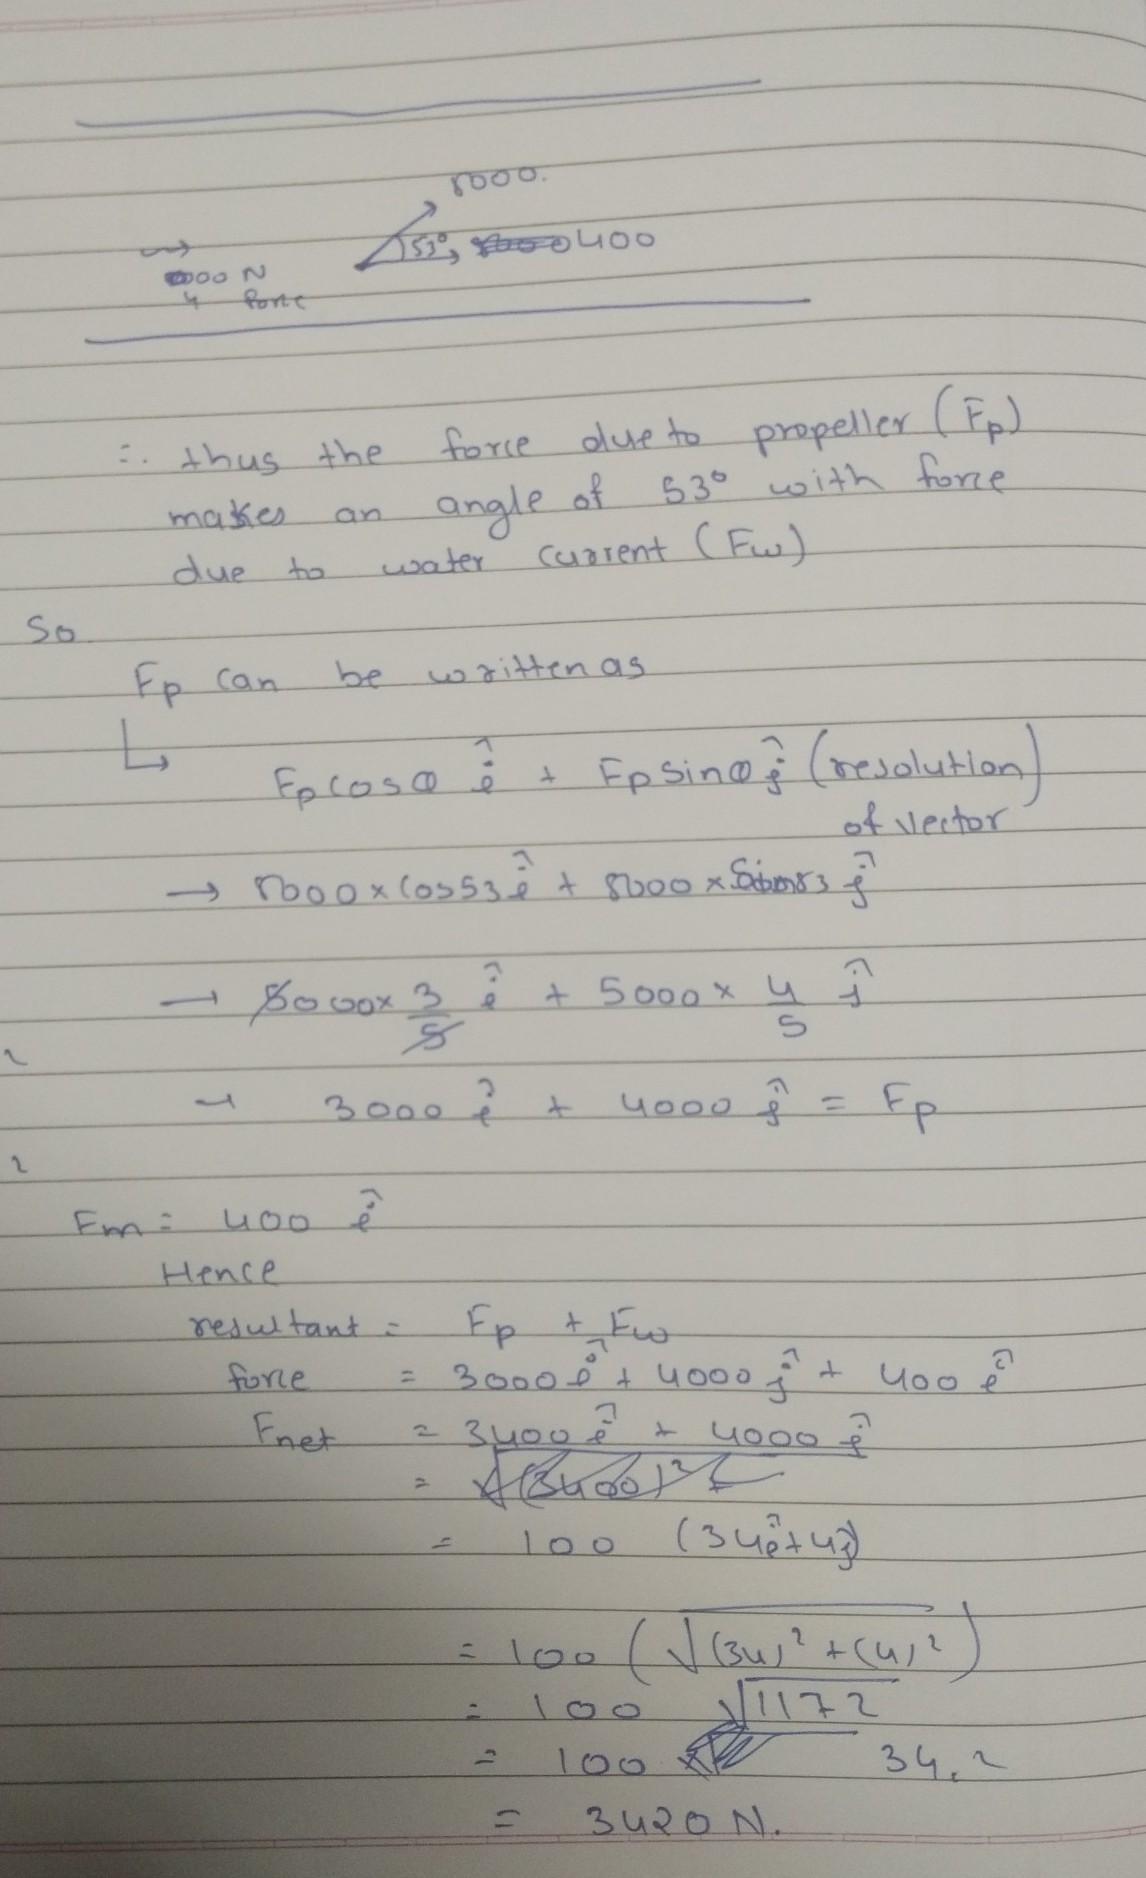 5000.
53°, 400
000 N
4 force
∴ thus the force due to propeller (Fp)
makes an angle of 53° with force
due to water current (Fw)
So
Fp can be written as
↳ Fp cosθ î + Fp sinθ ĵ (resolution)
of vector
→ 5000 × cos53 î + 5000 × sin53 ĵ
→ 5000 × 3/5 î + 5000 × 4/5 ĵ
→ 3000 î + 4000 ĵ = Fp
Fm = 400 î
Hence
resultant = Fp + Fw
force = 3000 î + 4000 ĵ + 400 î
Fnet = 3400 î + 4000 ĵ
= √(3400)² +
= 100 (34î + 4ĵ)
= 100 (√(34)² + (4)²)
= 100 √1172
= 100 34.2
= 3420 N.